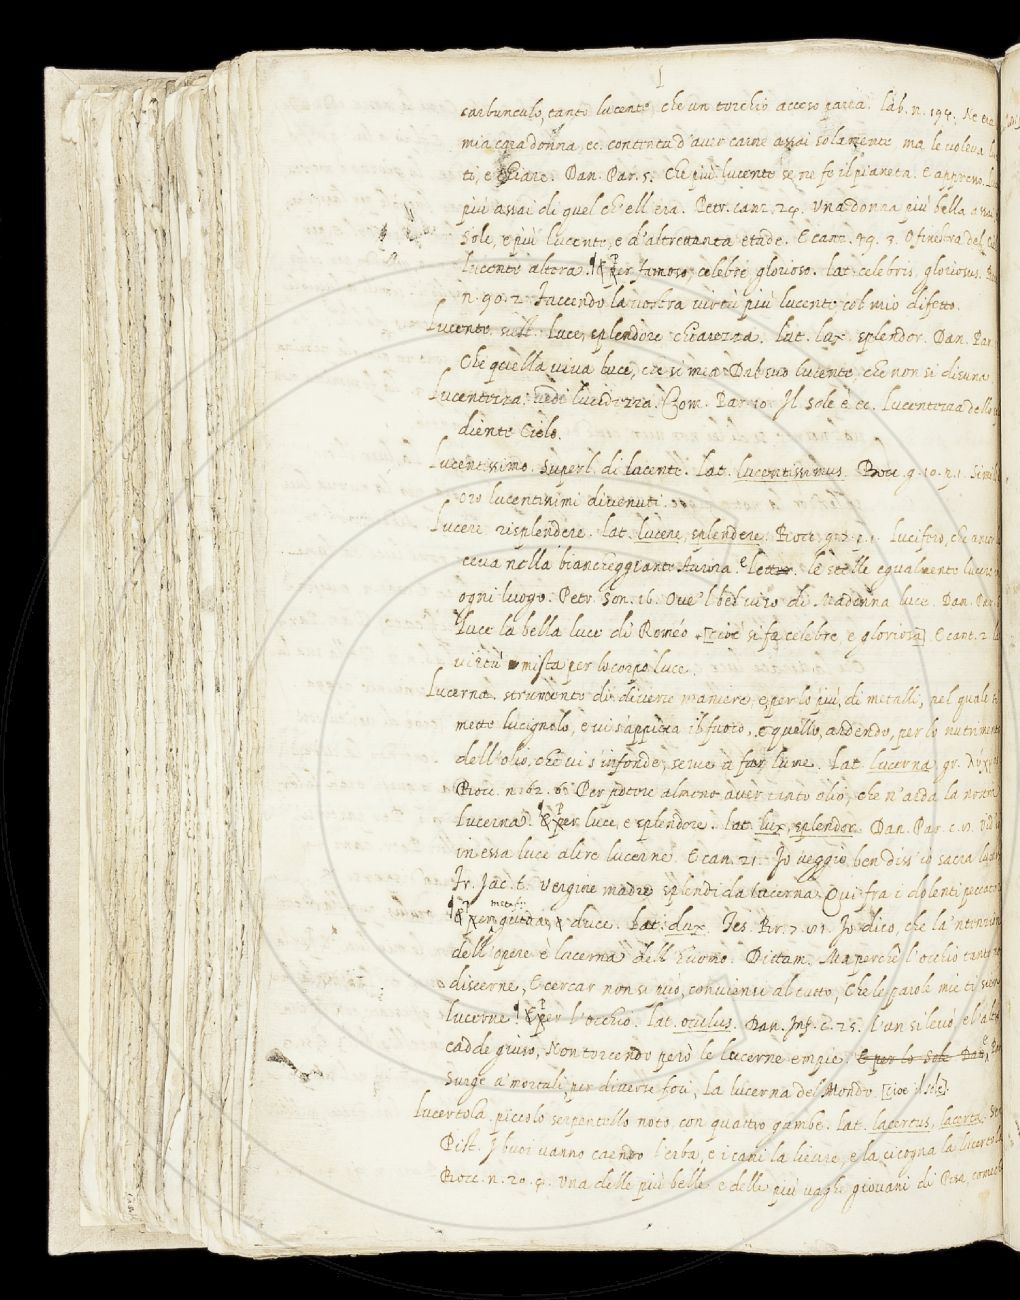 carbunculo, tanto lucente, che un torchio acceso paria. lab. n. 194.
mia cara donna, ec. contenta d'aver carne assai solamente ma le voleva
ti, e chiare. Dan. Par. 5. Che più lucente se ne fe il pianeta. E appresso
più assai di quel ch'ell'era. Petr. canz. 24. Una donna più bella assai
Sole, e più lucente, e d'altrettanta etade. E canz. 49. 3. O finestra del
lucente altera. § Per famoso, celebre glorioso. lat. celebris, gloriosus.
n. 90. 2. Facendo la vostra virtù più lucente col mio difetto.
Lucente. sust. luce, splendore chiarezza. Lat. lux splendor. Dan. Par.
Che quella viva luce, che si mea Dal suo lucente che non si disuna
Lucentezza. vedi lucidezza. Com. Par. 10. Il Sole è ec. Lucentezza dello
diente Cielo.
Lucentissimo. Superl. di lucente. Lat. lucentissimus. Bocc. g. 10. 9. 1.
oro lucentissimi divenuti.
Lucere risplendere. lat. lucere, splendere. Bocc. g. 7. p. 1. Lucifero, che
ceva nella biancheggiante Aurora. le stelle egualmente lucere
ogni luogo. Petr. Son. 16. Ove'l bel viso di Madonna luce. Dan. Par.
Luce la bella luce di Roméo [cioè si fa celebre e gloriosa] E cant. 2.
virtù mista per lo corpo luce.
Lucerna. strumento di diverse maniere, e per lo più, di metalli, nel quale si
mette lucignolo, e vi s'appicca il fuoco, e quello, ardendo, per lo nutrimento
dell'olio, che vi s'infonde, serve à far lume. Lat. lucerna gr.
Bocc. n. 62. 6. Per potere almeno aver tanto olio, che n'arda la nostra
lucerna. § Per luce, e splendore. Lat. lux, splendor. Dan. Par. c.
in essa luce altre lucerne. E can. 21. Io veggio ben diss'io sacra
Fr. Jac. t. Vergine madre splendida lucerna Qui fra i dolenti
§ Per metaf. guida, e duce. Lat. dux. Tes. Br. 7. Io dico, che la'ntenzione
dell'opere è lucerna dell'huomo. Dittam. Ma perchè l'occhio
discerne, E cercar non si può, conviensi al tutto, Che le parole mie ti
lucerne. § Per l'occhio. Lat. oculus. Dan. Inf. c. 25. L'un si levò, e l'altro
cadde giuso, Non torcendo però le lucerne empie E per lo Sole Dan.
Surge a' mortali per diverse foci, La lucerna del Mondo [cioe il sole].
Lucertola. piccolo serpentello noto, con quattro gambe. lat. lacertus, lacerta.
Pist. I buoi vanno caendo l'erba, e i cani la lievre, e la cicogna la lucertola
Bocc. n. 20. 4. Una delle più belle e delle più vaghe giovani di Pisa,